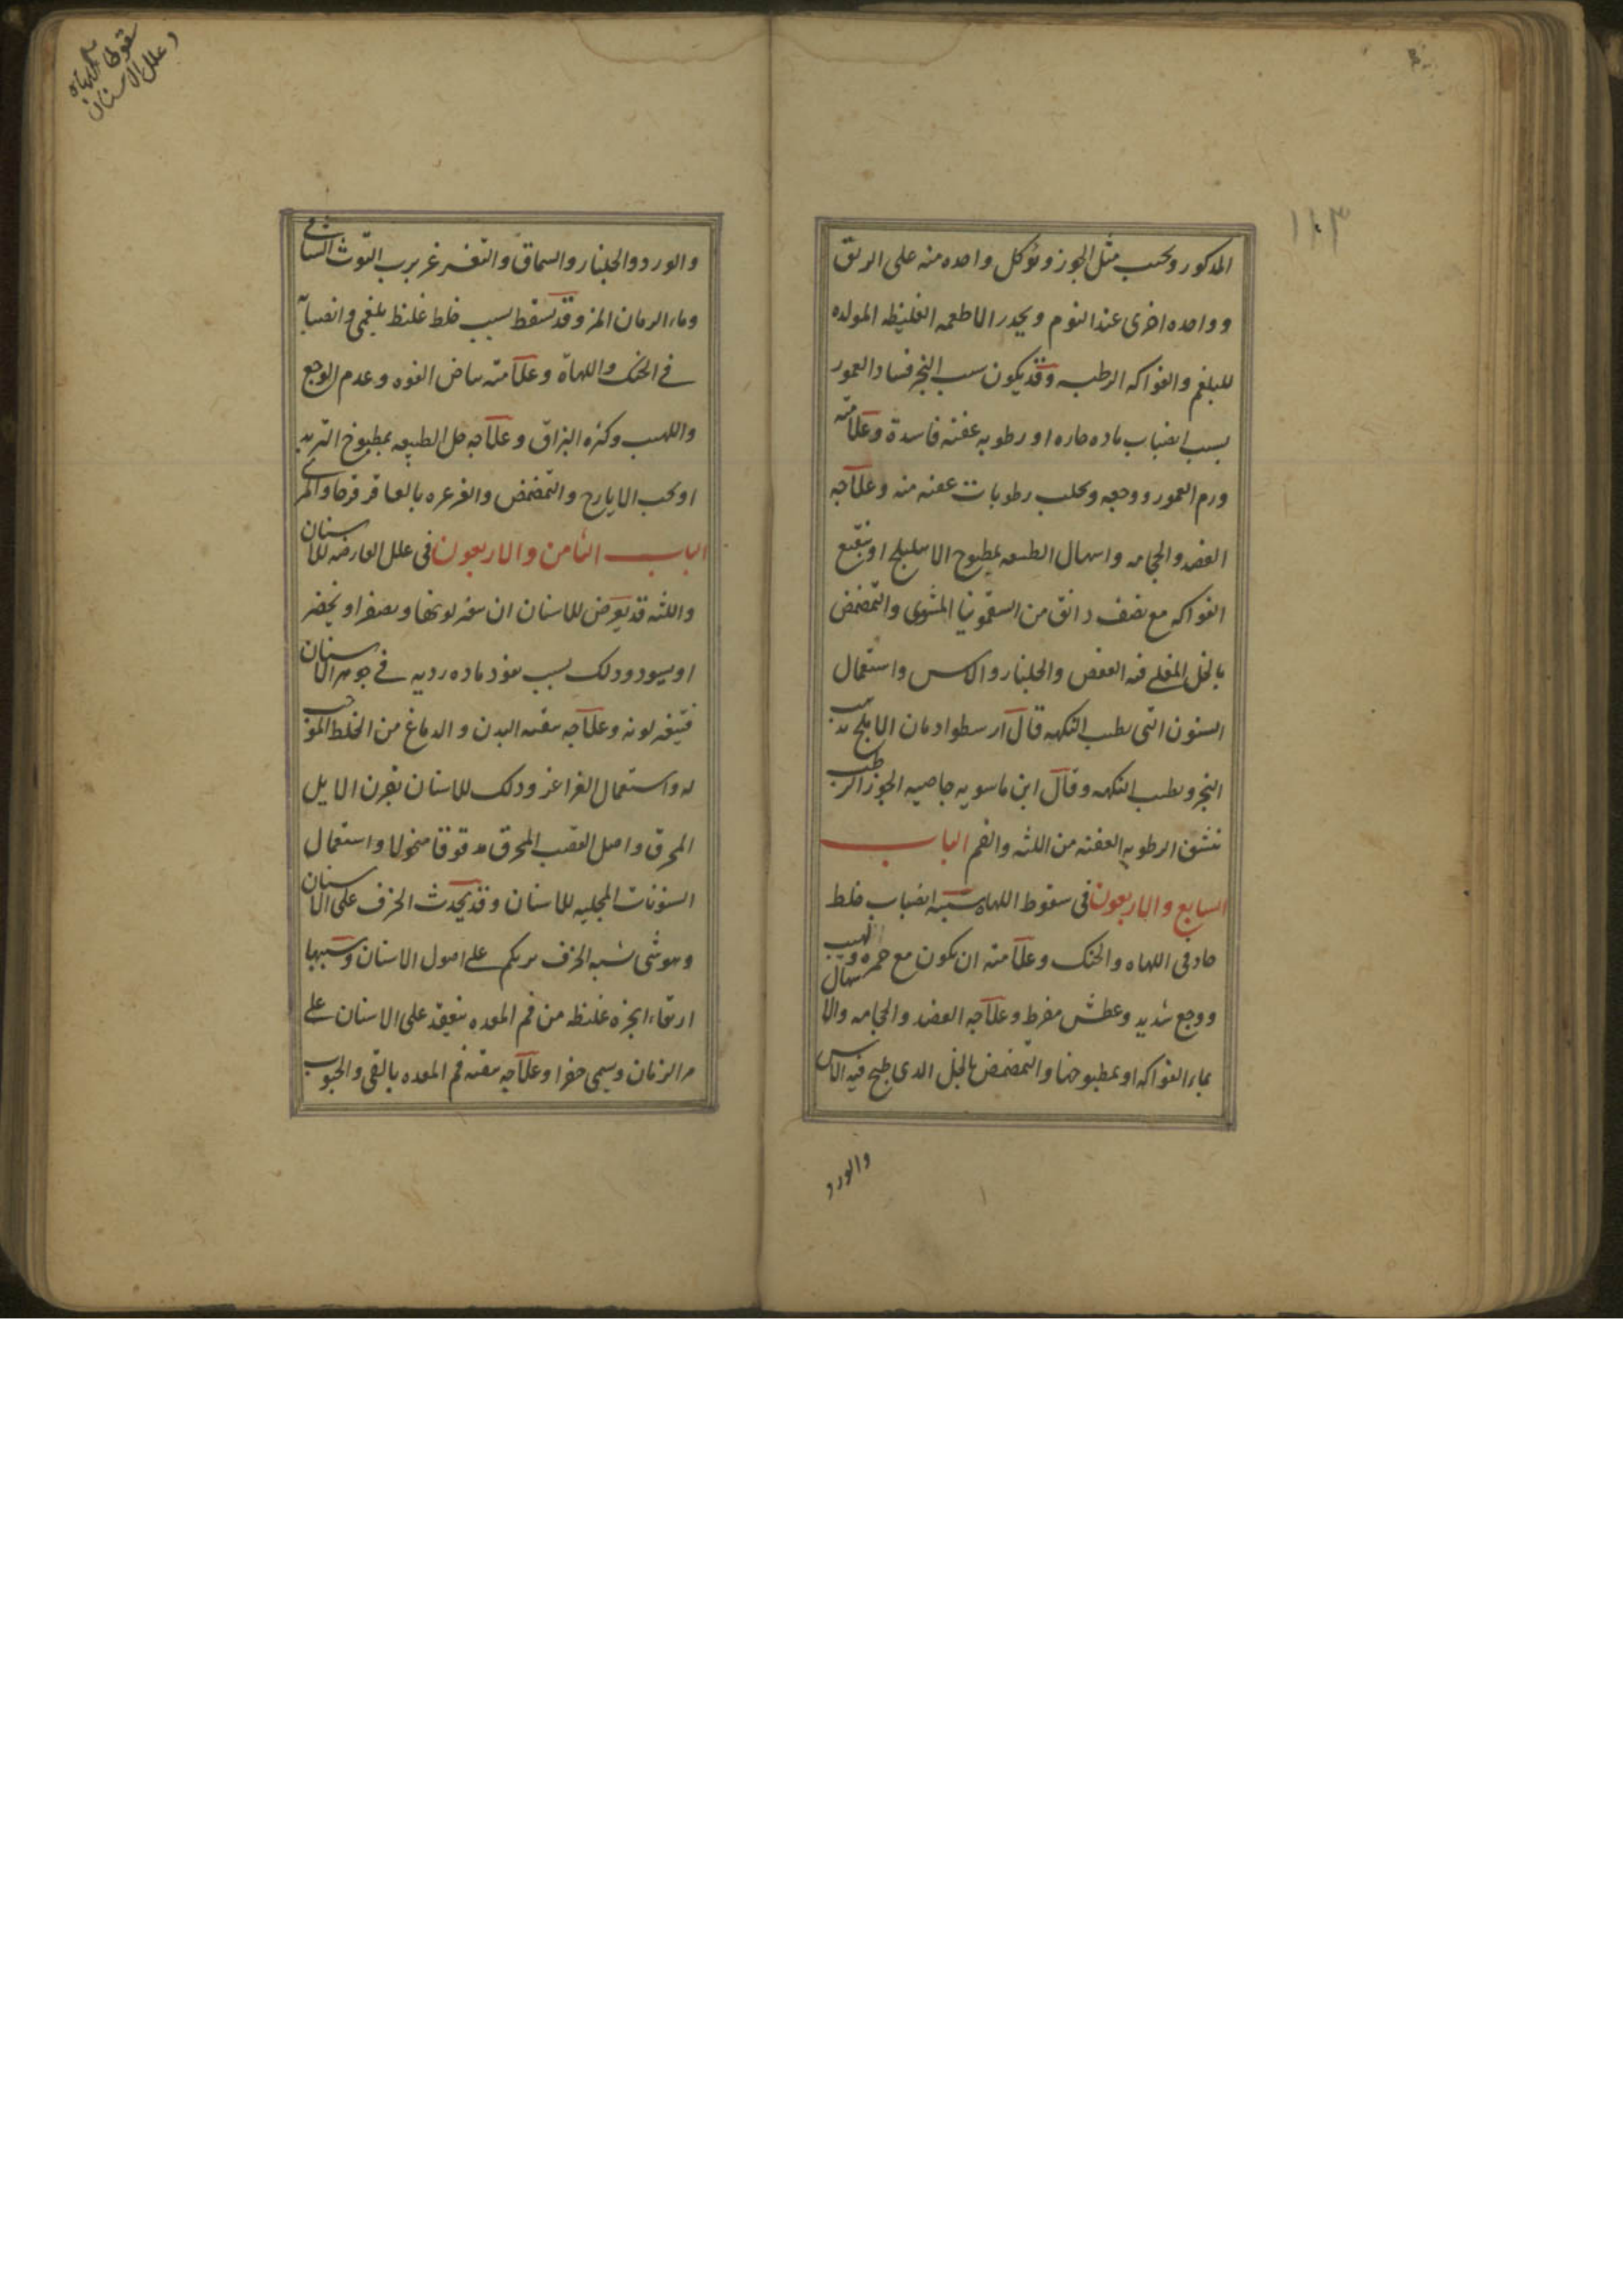 ١١٣
المذكور ويحبب مثل الجوز ويؤكل واحده منه على الريق
وواحده اخرى عند النوم ويحذر الاطعمه الغليظه المولده
للبلغم والفواكه الرطبه وقد يكون سبب البخر فساد العمور
بسبب انصباب ماده حاره او رطوبه عفنه فاسدة وعلامته
ورم العمور ووجعه وتحلب رطوبات عفنه منه وعلاجه
الفصد والحجامه واسهال الطبيعه بمطبوخ الاهليلج او بنقيع
الفواكه مع نصف دانق من السقمونيا المشوى والتمضمض
بالخل المغلى فيه العفص والجلنار والاس واستعمال
السنون التى يطيب النكهه قال ارسطو ادمان الاملج يذهب
البخر ويطيب النكهه وقال ابن ماسويه خاصيه الجوز الرطب
تنشق الرطوبه العفنه من اللثه والفم الباب
السابع والاربعون فى سقوط اللهاه سببه انصباب خلط
حاد فى اللهاه والحنك وعلامته ان يكون مع حمره ولهيب
ووجع شديد وعطش مفرط وعلاجه الفصد والحجامه والاسهال
بماء الفواكه او بمطبوخها والتمضمض بالخل الذى طبخ فيه الاس
والورد
سقوط اللهاة
وعلل الاسنان
والورد والجلنار والسماق والتغرغر برب التوث الشامى
وماء الرمان المز وقد تسقط بسبب خلط غليظ بلغمى وانصبابه
فى الحنك واللهاة وعلامته بياض الفوه وعدم الوجع
واللهيب وكثره البزاق وعلاجه حل الطبيعه بمطبوخ التربد
او بحب الايارج والتمضمض والغرغره بالعاقرقرحا والمرى
الباب الثامن والاربعون فى علل العارضه للاسنان
واللثه قد يعرض للاسنان ان يتغير لونها ويصفر او يخضر
او يسود وذلك بسبب نفوذ ماده رديه فى جوهر الاسنان
فيتغير لونه وعلاجه تنقيه البدن والدماغ من الخلط الموجب
له واستعمال الغراغر ودلك للاسنان بقرن الايل
المحرق واصل القصب المحرق مدقوقا منخولا واستعمال
السنونات المجليه للاسنان وقد يحدث الخزف على الاسنان
وهو شى شبه الخزف يرتكم على اصول الاسنان وسببها
ارتقاء ابخره غليظه من فم المعده ينعقد على الاسنان على
مر الزمان ويسمى حفرا وعلاجه تنقيه فم المعده بالقى والحبوب